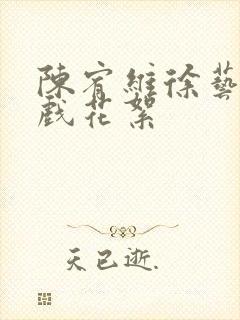 陳宥維徐藝
戲花絮
天已逝.